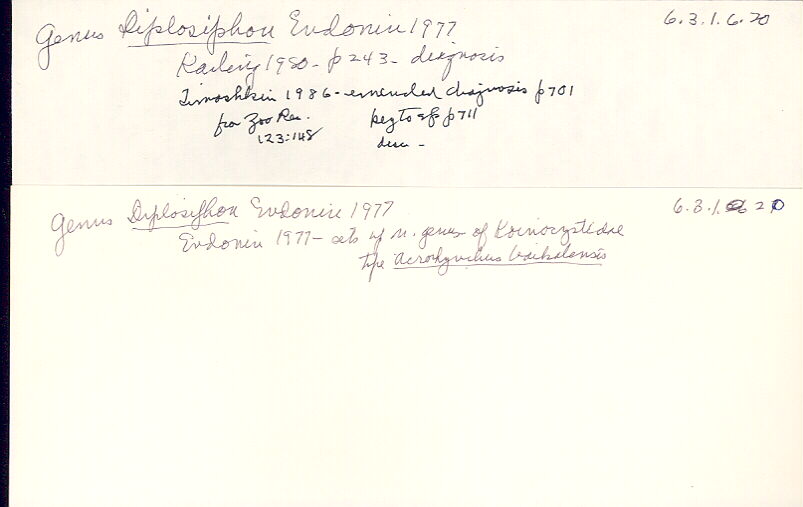 Genus Diplosiphon Evdonin 1977 6.3.1.6.20
Karling 1980 - p 243 - diagnosis
Timoshkin 1986 - emended diagnosis p 701
from Zoo Rec. key to sp p 711
123:148 desc -
Genus Diplosiphon Evdonin 1977 6.3.1.6 20
Evdonin 1977 - sets up n. genus of Koinocystidae
type Acrorhynchus baikalensis